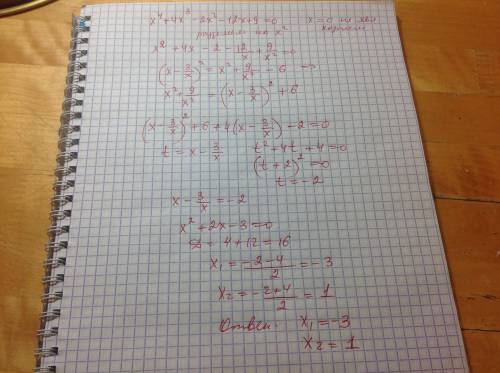 x⁴+4x³-2x²-12x+9=0   x=0 не явл
разделим на x²   корнем
x²+4x-2-12/x+9/x²=0
(x-3/x)²=x²+9/x²-6 ⇒
x²+9/x²=(x-3/x)²+6
(x-3/x)²+6+4(x-3/x)-2=0
t=x-3/x   t²+4t+4=0
(t+2)²=0
t=-2
x-3/x=-2
x²+2x-3=0
D=4+12=16
x₁=(-2-4)/2=-3
x₂=(-2+4)/2=1
Ответ: x₁=-3
x₂=1